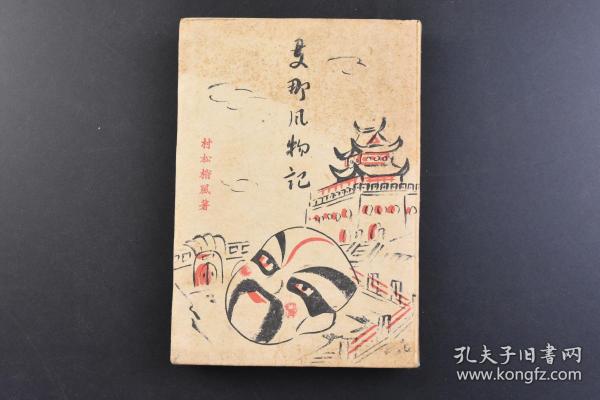 支那風物記
村松梢風著
孔夫子旧书网
www.kongfz.com